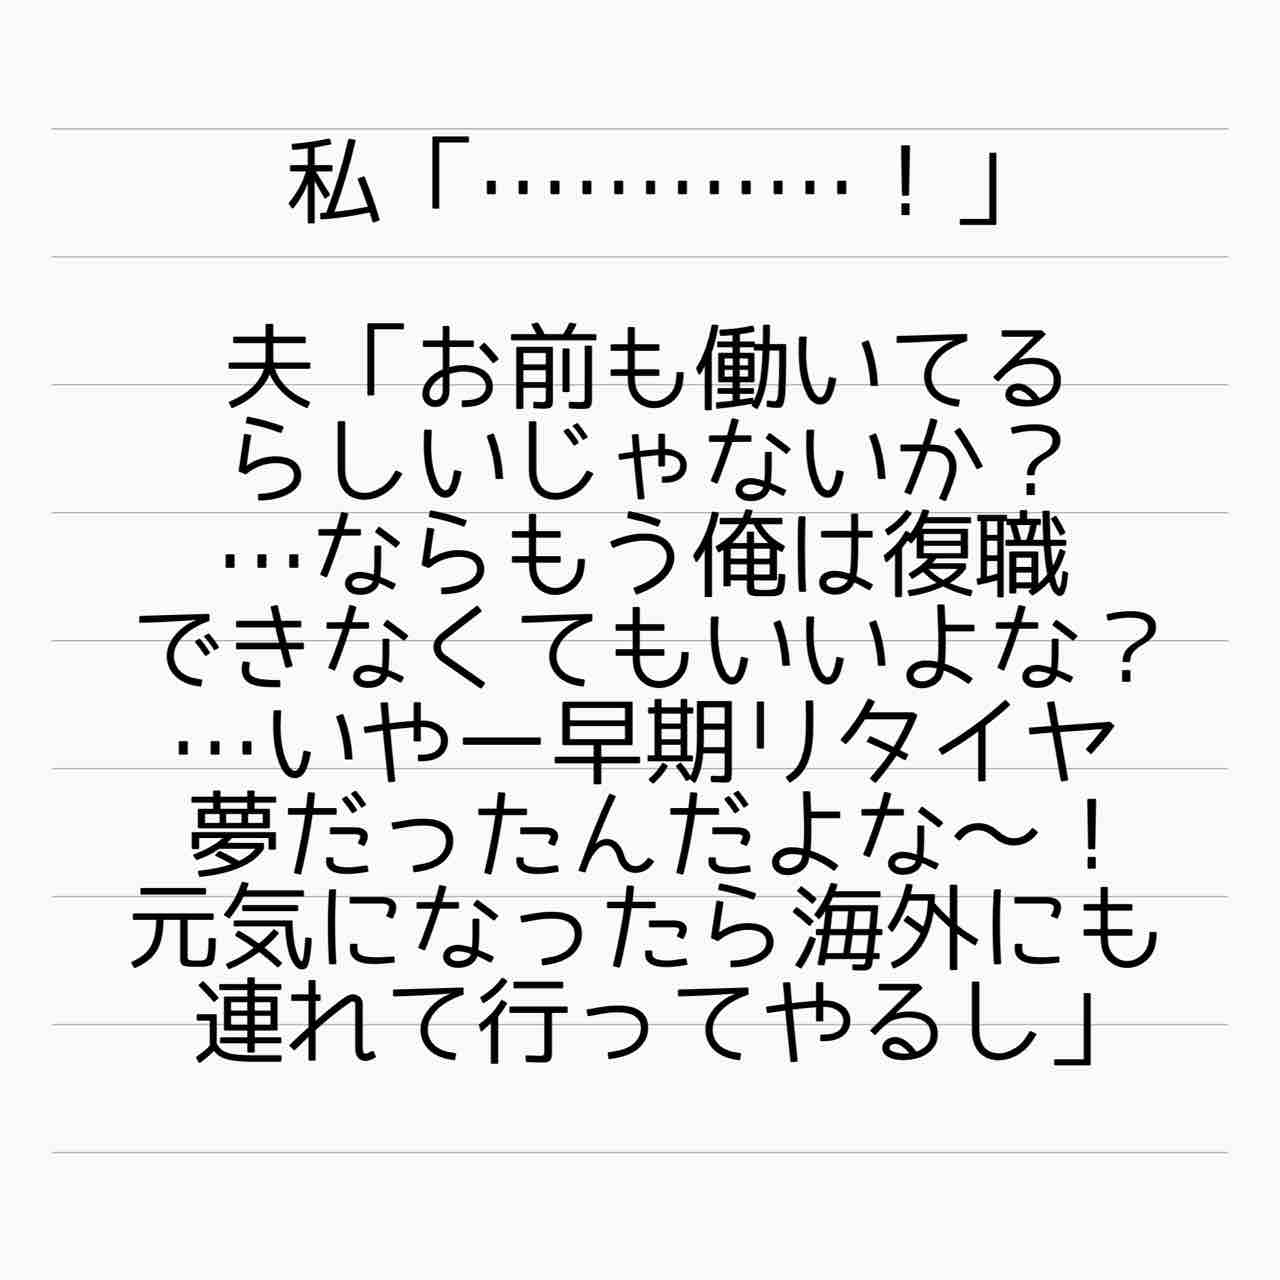 私「…………！」
夫「お前も働いてる
らしいじゃないか？
…ならもう俺は復職
できなくてもいいよな？
…いやー早期リタイヤ
夢だったんだよな〜！
元気になったら海外にも
連れて行ってやるし」